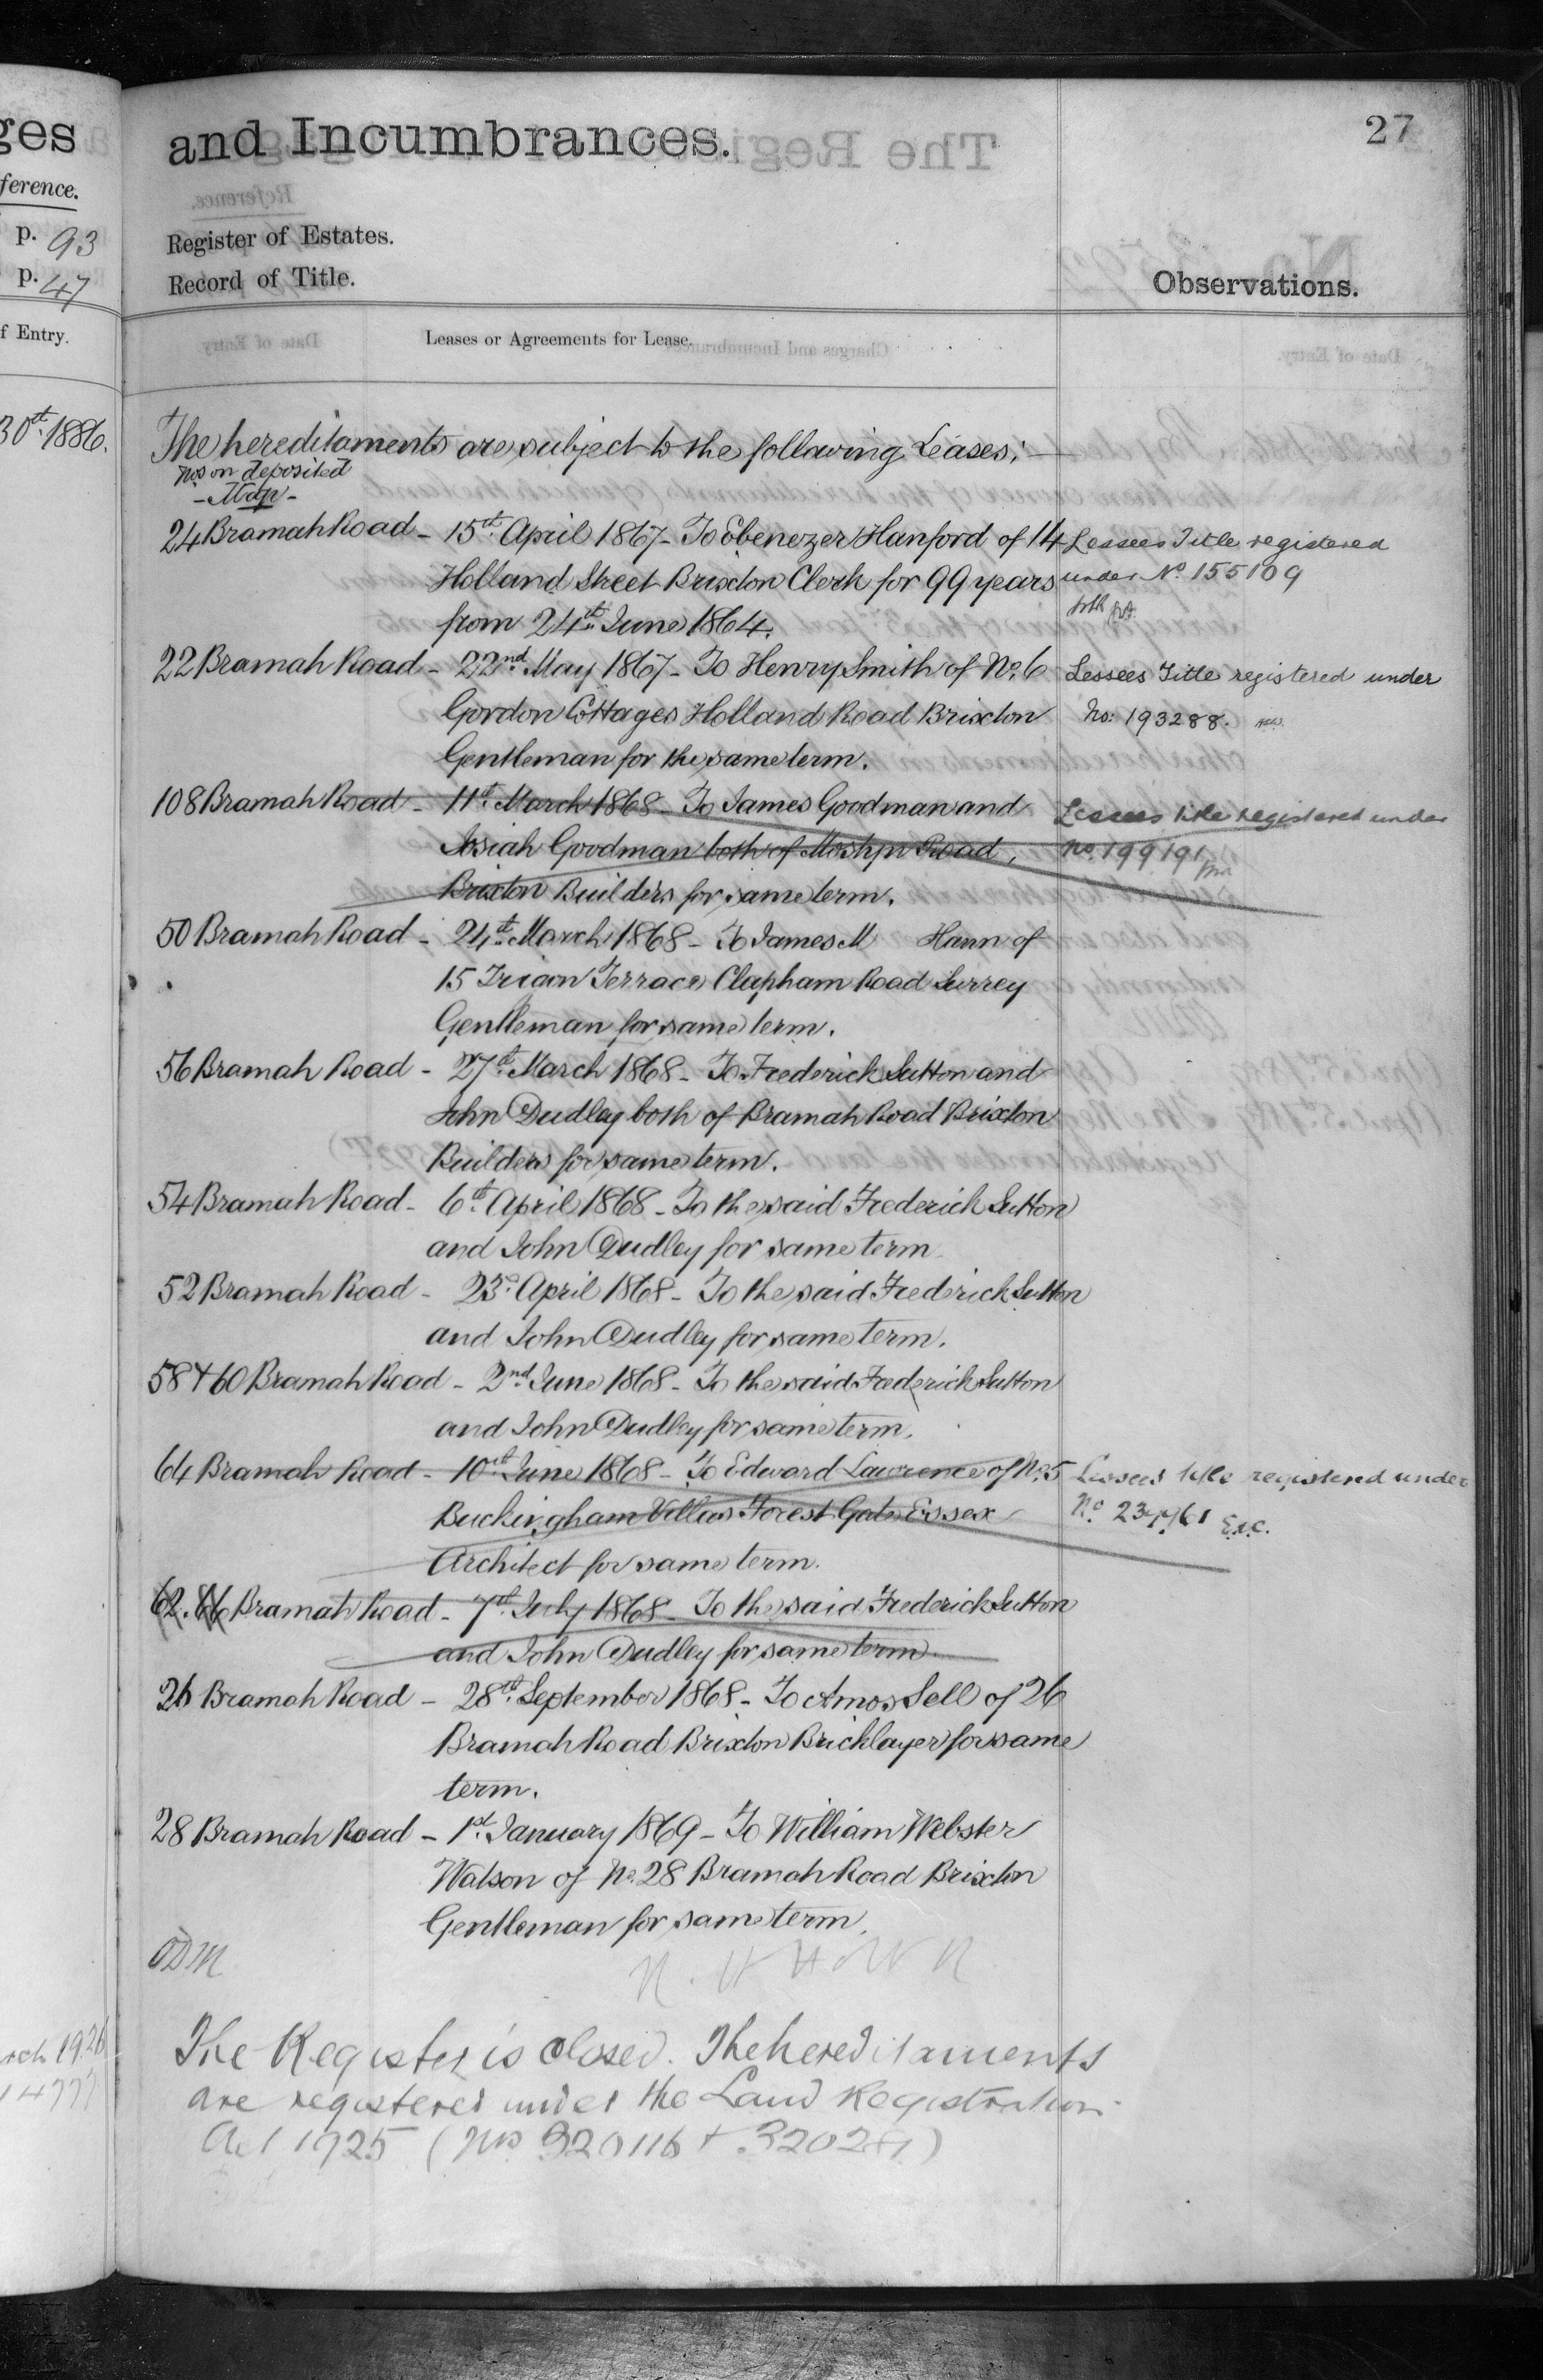 ges
ference.
p. 93
p. 47
f Entry.
30th 1886.
and Incumbrances.
27
Register of Estates.
Record of Title.
Observations.
Leases or Agreements for Lease.
The hereditaments are subject to the following Leases:—
Nos on deposited
- Map -
24 Bramah Road - 15th April 1867 - To Ebenezer Hanford of 14
Holland Street Brixton Clerk for 99 years
from 24th June 1864.
Lessees Title registered
under No. 155109
22 Bramah Road - 22nd May 1867 - To Henry Smith of No. 6
Gordon Cottages Holland Road Brixton
Gentleman for the same term.
Lessees Title registered under
No: 193288.
108 Bramah Road - 11th March 1868 - To James Goodman and
Josiah Goodman both of Mostyn Road,
Brixton Builders for same term.
Lessees title registered under
No. 199191
50 Bramah Road - 24th March 1868 - To James M Hann of
15 Trigon Terrace Clapham Road Surrey
Gentleman for same term.
56 Bramah Road - 27th March 1868 - To Frederick Sutton and
John Dudley both of Bramah Road Brixton
Builders for same term.
54 Bramah Road - 6th April 1868 - To the said Frederick Sutton
and John Dudley for same term
52 Bramah Road - 23rd April 1868 - To the said Frederick Sutton
and John Dudley for same term.
58 & 60 Bramah Road - 2nd June 1868 - To the said Frederick Sutton
and John Dudley for same term.
64 Bramah Road - 10th June 1868 - To Edward Lawrence of No. 5
Buckingham Villas Forest Gate Essex
Architect for same term.
Lessees title registered under
No. E.A.C.
62. 66 Bramah Road - 7th July 1868 - To the said Frederick Sutton
and John Dudley for same term
26 Bramah Road - 28th September 1868 - To Amos Sell of 26
Bramah Road Brixton Bricklayer for same
term.
28 Bramah Road - 1st January 1869 - To William Webster
Watson of No. 28 Bramah Road Brixton
Gentleman for same term.
ODM
The Register is closed. The hereditaments
are registered under the Land Registration
Act 1925 (Nos 320116 +
rch 1926
14777